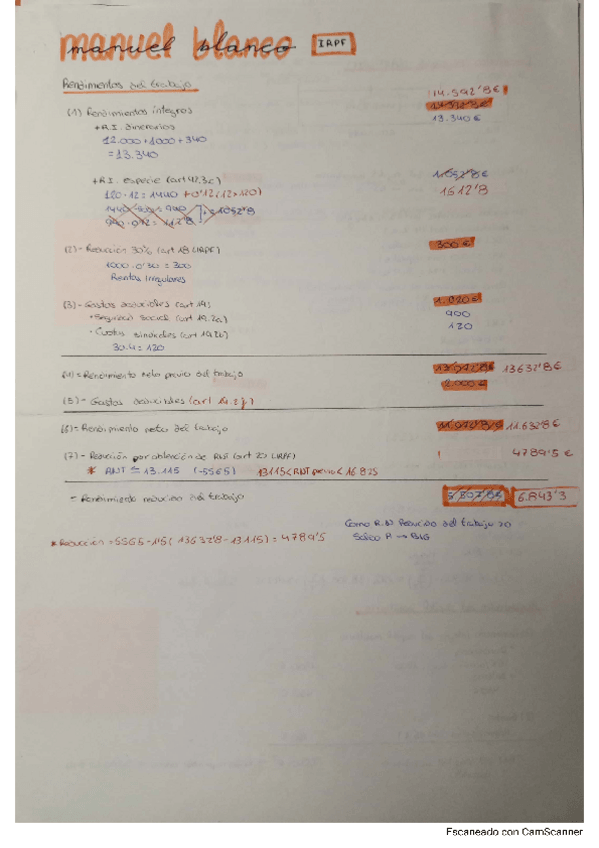 manuel blanco IRPF
Rendimientos del trabajo
(1) Rendimientos íntegros 14.592'8€
+R.I. dinerarios 13.340€
12.000+1000+340
=13.340
+R.I. especie (art 42,3c) 1052'8€
120·12=1440 +0'12(12·120) 1612'8
1440-500=940 =1052'8
940·0'12=112'8
(2)- Reducción 30% (art 18 LIRPF) 300€
1000·0'30=300
Rentas Irregulares
(3)- Gastos deducibles (art 19) 1.020€
•Seguridad Social (art 19.2a) 900
- Cuotas sindicales (art 19.2b) 120
30·4=120
(4)=Rendimiento neto previo del trabajo 13.072'8€ 13632'8€
2.000€
(5)- Gastos deducibles (art 19.2f)
(6)=Rendimiento neto del trabajo 11.072'8€ 11.632'8€
(7)-Reducción por obtención de RNT (art 20 LIRPF) 4789'5€
* RNT = 13.115 (-5565) 13115<RNT previo<16825
= Rendimiento reducido del trabajo 5.807'8€ 6.843'3
Como R.N Reducido del trabajo >0
Saldo A → BIG
*Reducción=5565-1'5(13632'8-13115)=4789'5
Escaneado con CamScanner